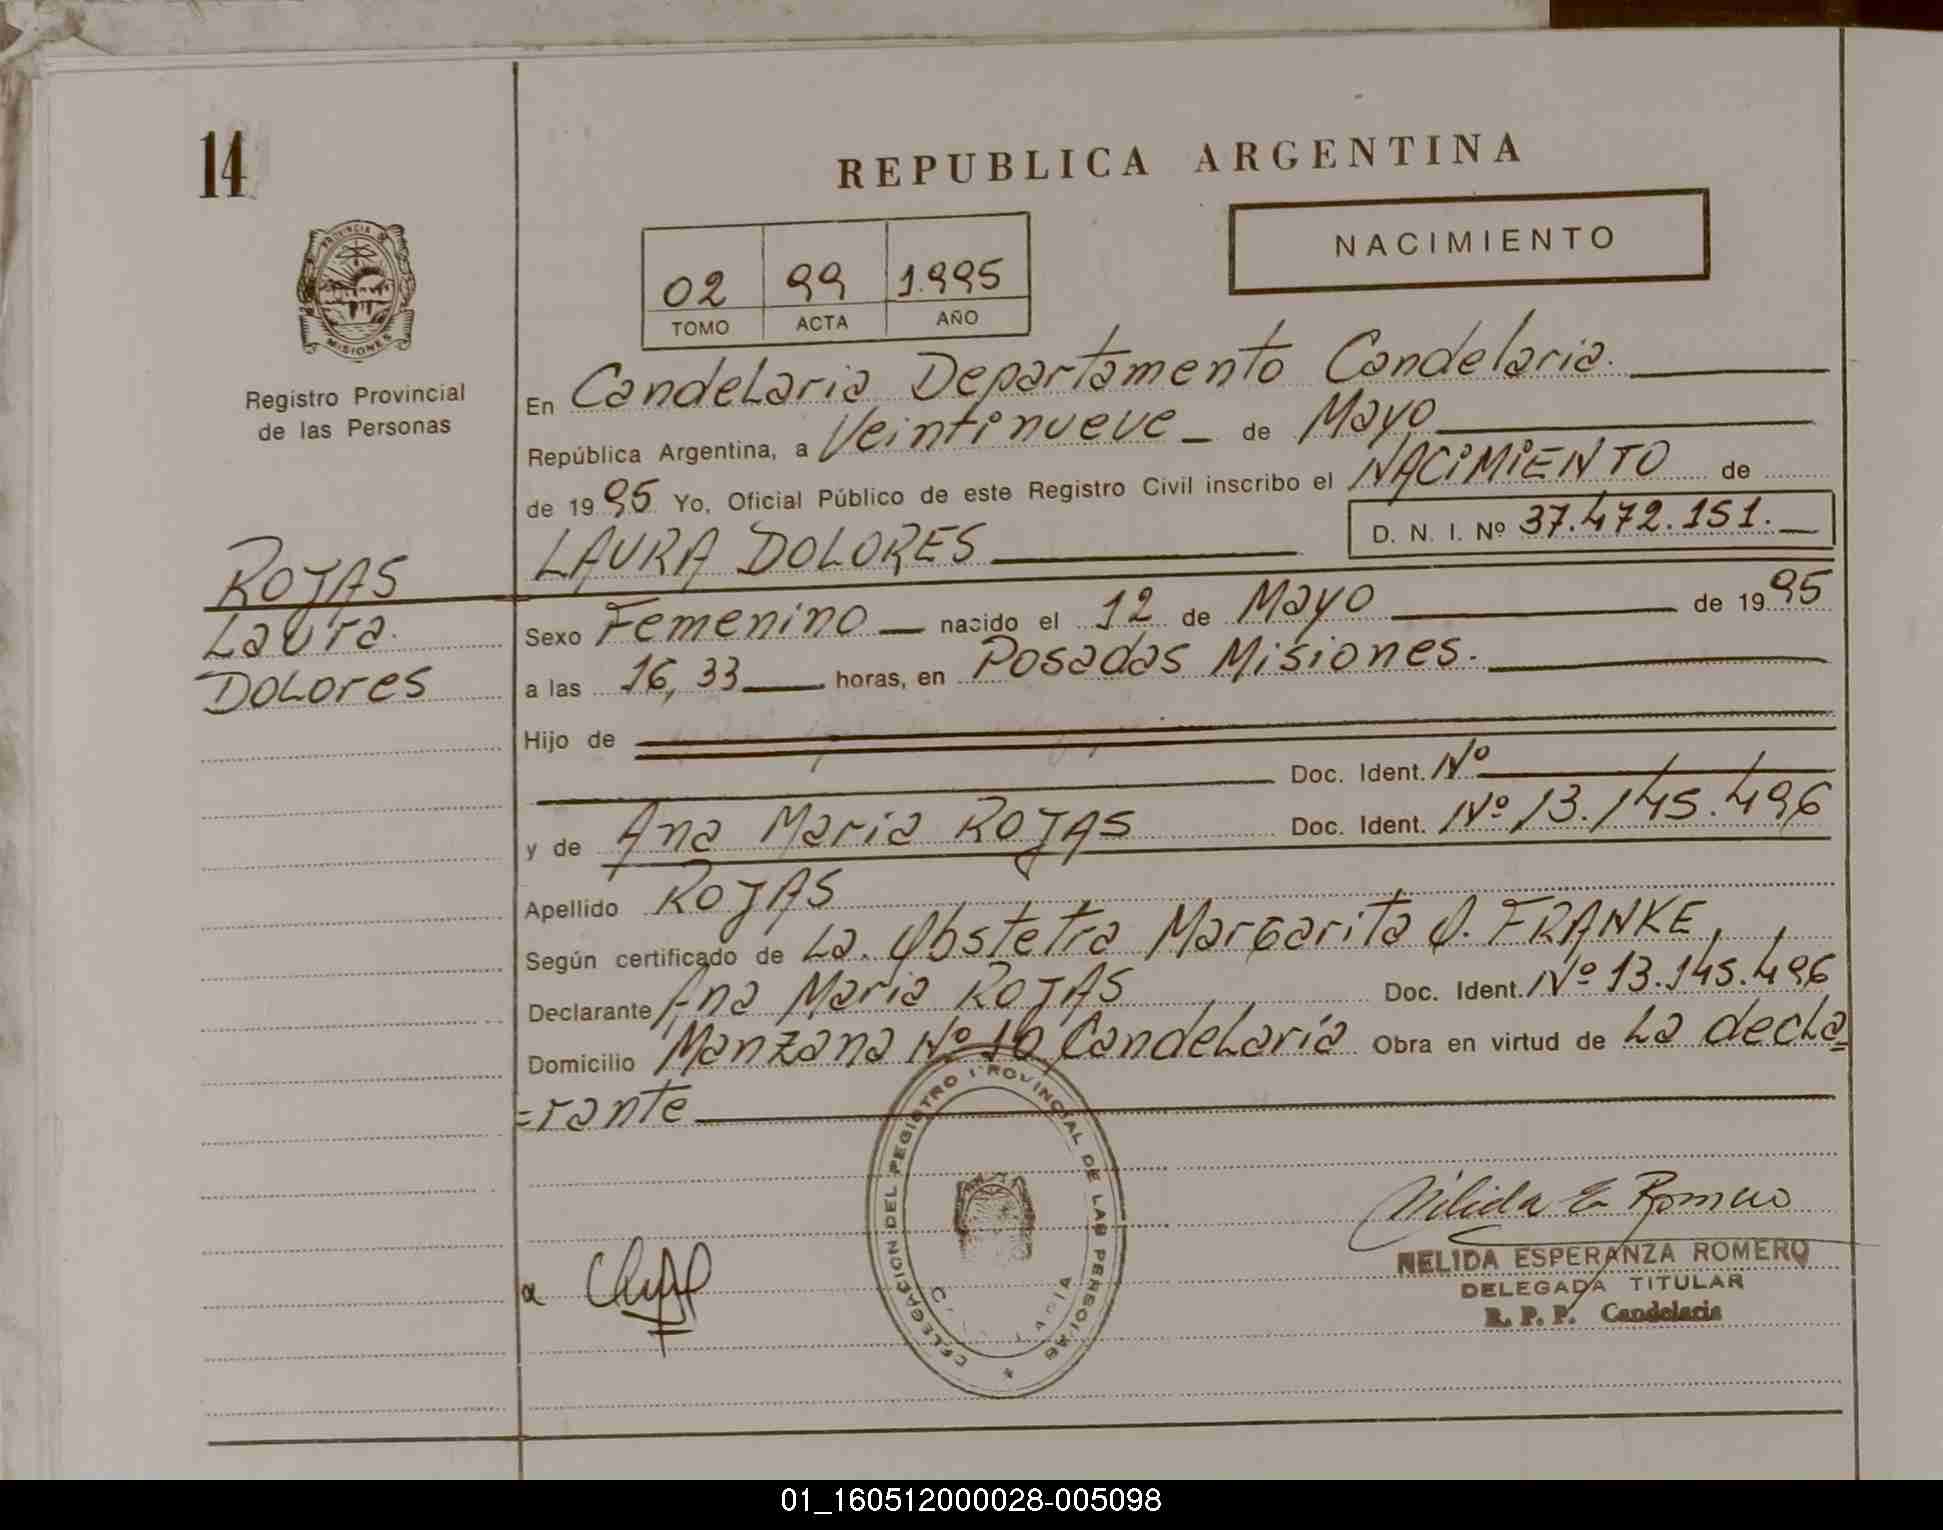 14
REPUBLICA ARGENTINA
NACIMIENTO
02 99 1.995
TOMO ACTA AÑO
PROVINCIA DE
MISIONES
Registro Provincial
de las Personas
ROJAS
Laura
DoLores
En CandeLaria Departamento Candelaria.
República Argentina, a Veintinueve de Mayo
de 1995 Yo, Oficial Público de este Registro Civil inscribo el NACIMIENTO de
LAURA DOLORES D. N. I. Nº 37.472.151.
Sexo Femenino nacido el 12 de Mayo de 1995
a las 16,33 horas, en Posadas Misiones.
Hijo de
Doc. Ident. Nº
y de Ana Maria ROJAS Doc. Ident. Nº 13.145.496
Apellido ROJAS
Según certificado de La. Obstetra Margarita O. FRANKE,
Declarante Ana Maria ROJAS Doc. Ident. Nº 13.145.496
Domicilio Manzana Nº 10 CandeLaria Obra en virtud de La decla=
=rante
DELEGACION DEL REGISTRO PROVINCIAL DE LAS PERSONAS
Nélida E Romero
NELIDA ESPERANZA ROMERO
DELEGADA TITULAR
R. P. P. Candelaria
01_160512000028-005098